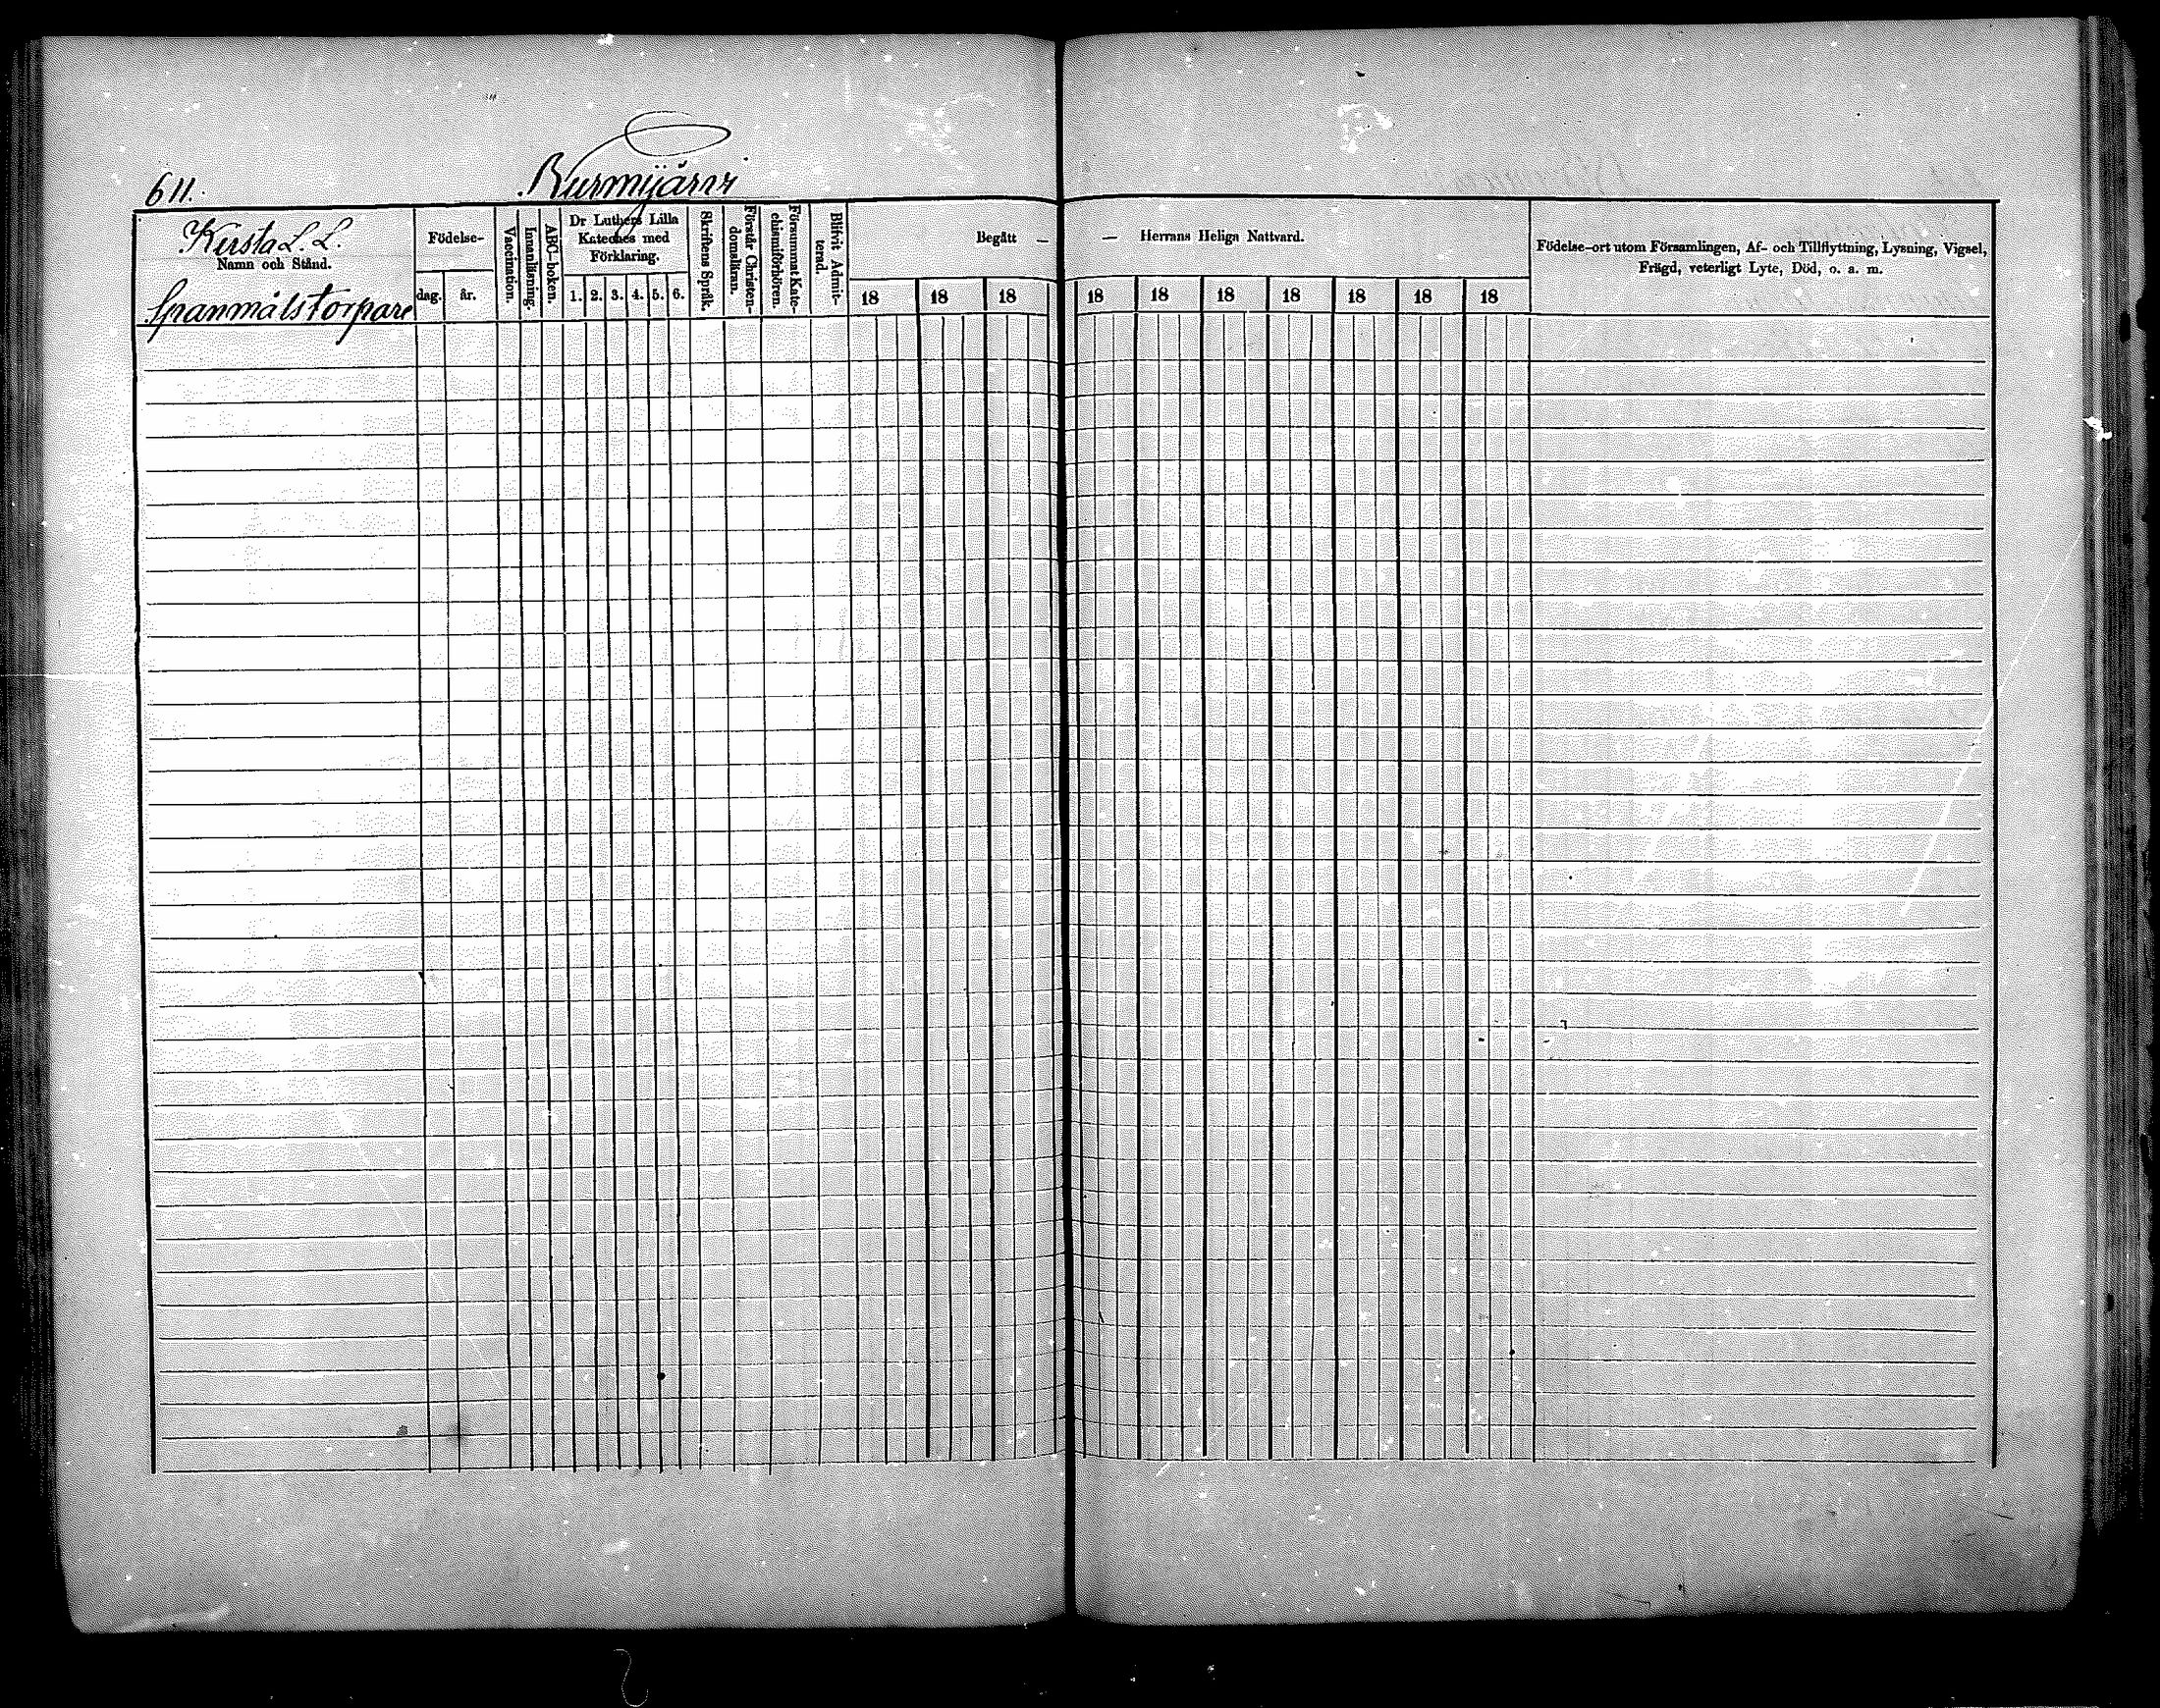 611.
Kursta L. L.
Namn och Stånd.
Spanmålstorpare
Födelse-
dag.
år.
Vaccination.
Innanläsning.
ABC-boken.
Dr Luthers Lilla
Kateches med
Förklaring.
1. 2. 3. 4. 5. 6.
Skriftens Språk.
Förstår Christen-
domsläran.
Försummat Kate-
chismiförhören.
Blifvit Admit-
terad.
Begått —
18 18 18
— Herrans Heliga Nattvard.
18 18 18 18 18 18 18
Födelse-ort utom Församlingen, Af- och Tillflyttning, Lysning, Vigsel,
Frägd, veterligt Lyte, Död, o. a. m.